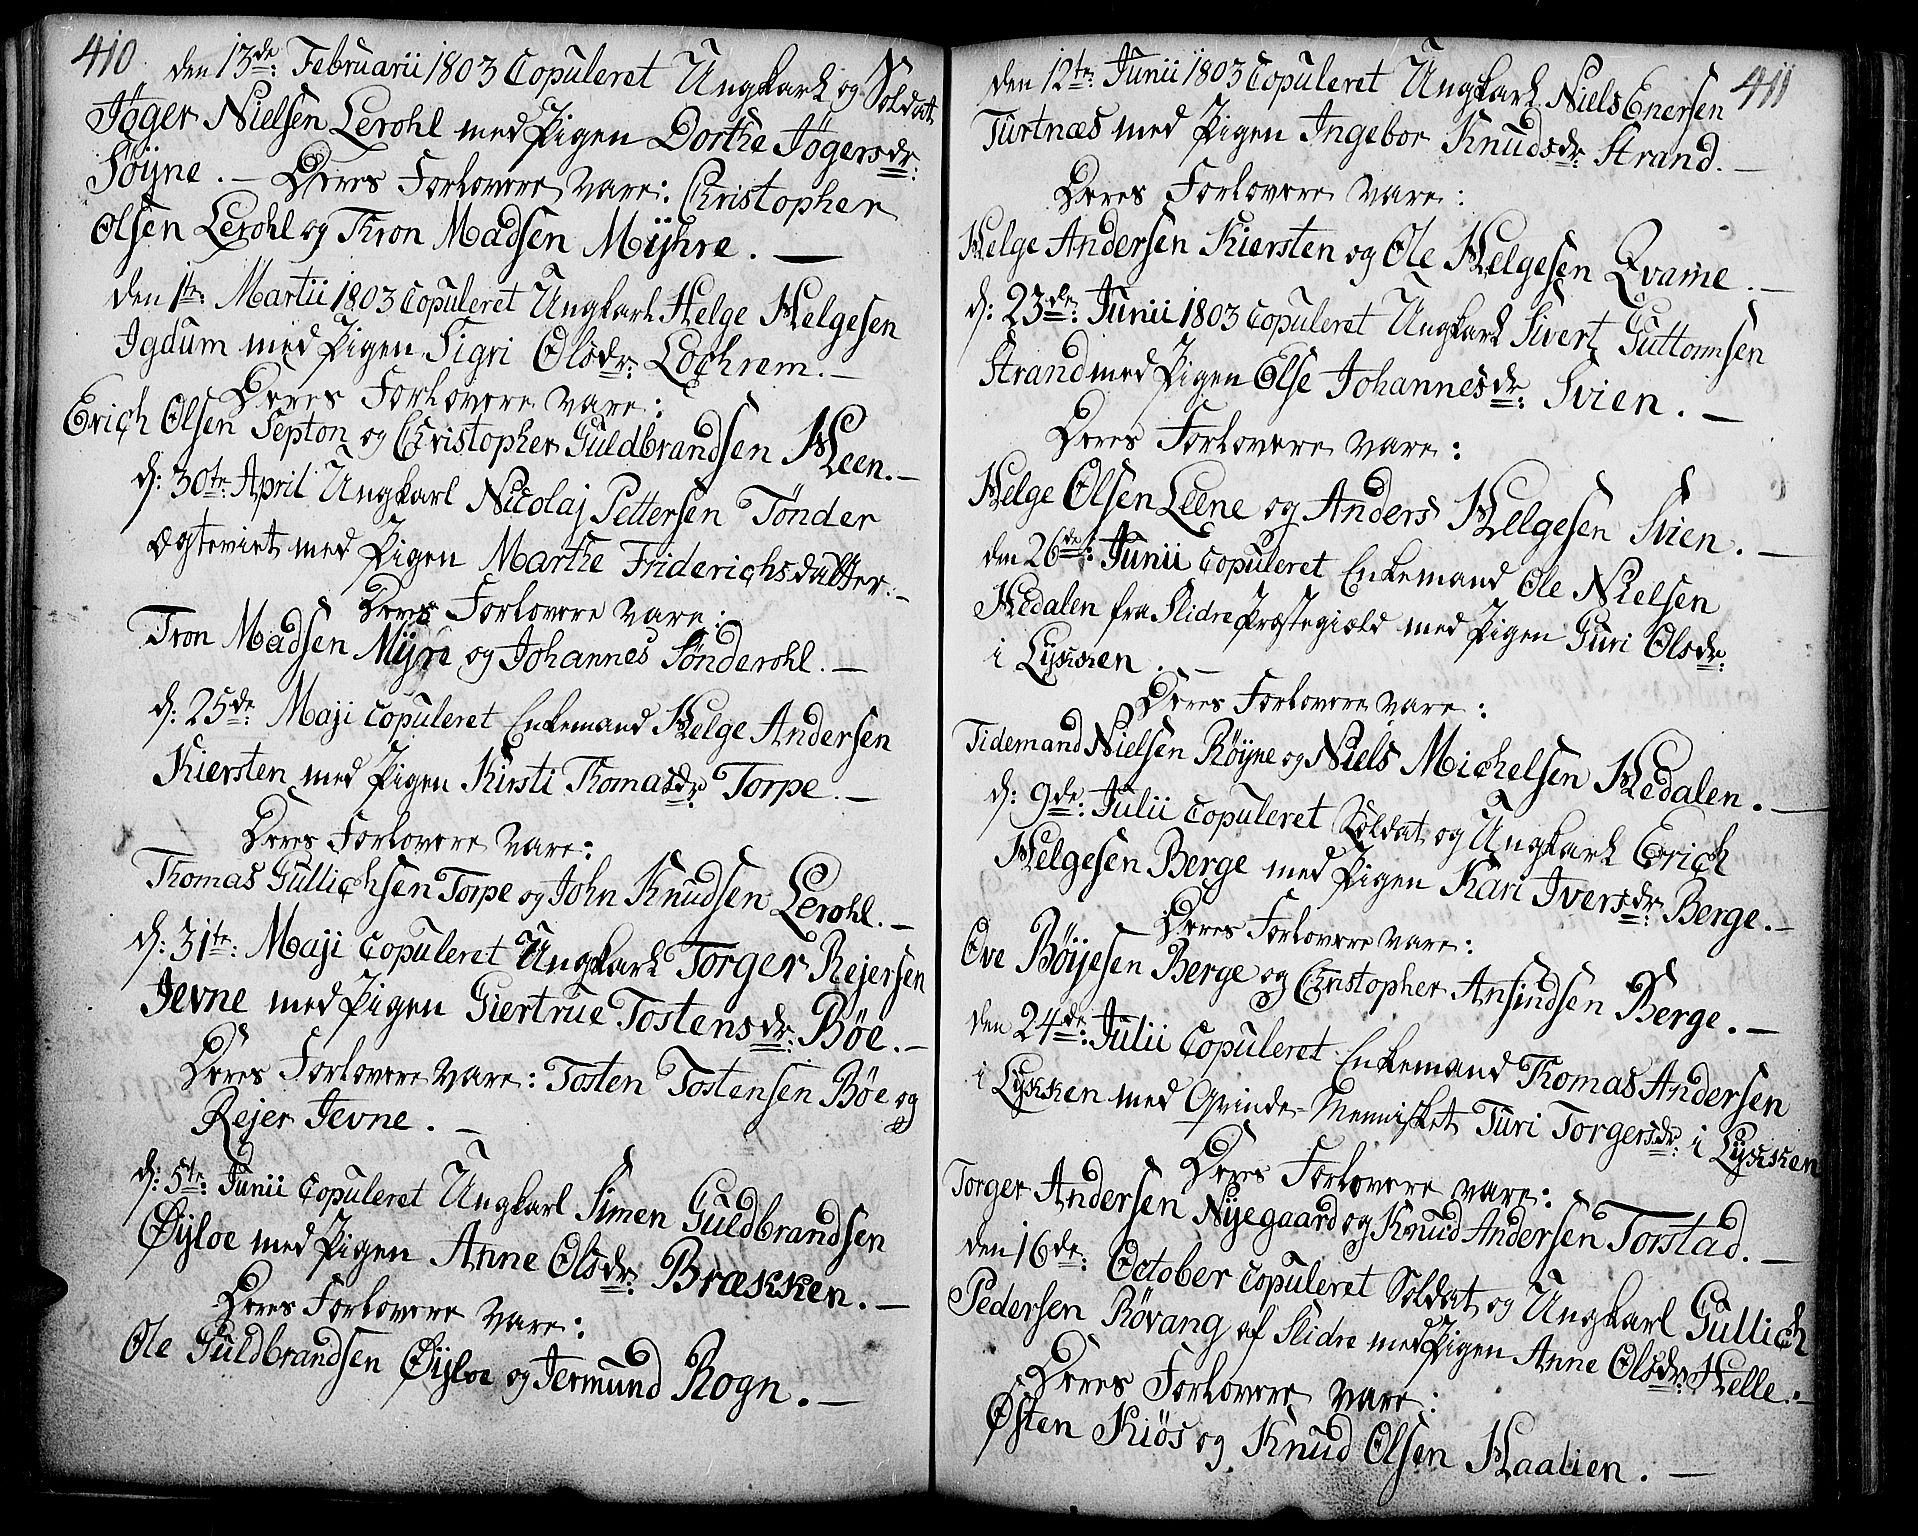 410.
den 13de: Februarii 1803 Copuleret Ungkarl og Soldat
Jøger Nielsen Lerohl med Pigen Dorthe Jøgersdr:
Søÿne. — Deres Forlovere vare: Christopher
Olsen Lerohl og Thron Madsen Mÿhre. —
den 1te: Martii 1803 Copuleret Ungkarl Helge Helgesen
Igdum med Pigen Sigri Olsdr: Lochrem. —
Deres Forlovere vare:
Erich Olsen Septon og Christopher Guldbrandsen Heen. —
d: 30te April Ungkarl Nicolaj Pettersen Tønder
ægteviet med Pigen Marthe Friderichsdatter. —
Deres Forlovere vare:
Tron Madsen Mÿre og Johannes Sønderohl. —
d: 25de Maji Copuleret Enkemand Helge Andersen
Kiersten med Pigen Kirsti Thomasdr: Torpe. —
Deres Forlovere vare:
Thomas Gullichsen Torpe og John Knudsen Lerohl. —
d: 31te: Maji Copuleret Ungkarl Torger Rejersen
Jevne med Pigen Giertrue Tostensdr: Bøe. —
Deres Forlovere vare: Tosten Tostensen Bøe og
Rejer Jevne. —
d: 5te: Junii Copuleret Ungkarl Simen Guldbrandsen
Øÿloe med Pigen Anne Olsdr: Brækken. —
Deres Forlovere vare:
Ole Guldbrandsen Øÿloe og Jermund Rogn. —
411
den 12te Junii 1803 Copuleret Ungkarl Niels Enersen
Turtnæs med Pigen Ingebor Knudsdr: Strand. —
Deres Forlovere vare:
Helge Andersen Kiersten og Ole Helgesen Qvame. —
d: 23de: Junii 1803 Copuleret Ungkarl Sivert Guttormsen
Strand med Pigen Else Johannesdr: Svien. —
Deres Forlovere vare:
Helge Olsen Leene og Anders Helgesen Svien. —
den 26de: Junii Copuleret Enkemand Ole Nielsen
Hedalen fra Slidre Præstegield med Pigen Guri Olsdr:
i Lykken. —
Deres Forlovere vare:
Tidemand Nielsen Røÿne og Niels Michelsen Hedalen. —
d: 9de: Julii Copuleret Soldat og Ungkarl Erich
Helgesen Berge med Pigen Kari Iversdr: Berge. —
Deres Forlovere vare:
Ove Bøÿesen Berge og Christopher Ansindsen Berge. —
den 24de: Julii Copuleret Enkemand Thomas Andersen
i Lykken med Qvinde-Mennisket Turi Torgersdr: i Lykken
Deres Forlovere vare:
Torger Andersen Nÿegaard og Knud Andersen Torstad. —
den 16de: October Copuleret Soldat og Ungkarl Gullich
Pedersen Røvang af Slidre med Pigen Anne Olsdr: Helle. —
Deres Forlovere vare:
Østen Kiøs og Knud Olsen Haalien. —